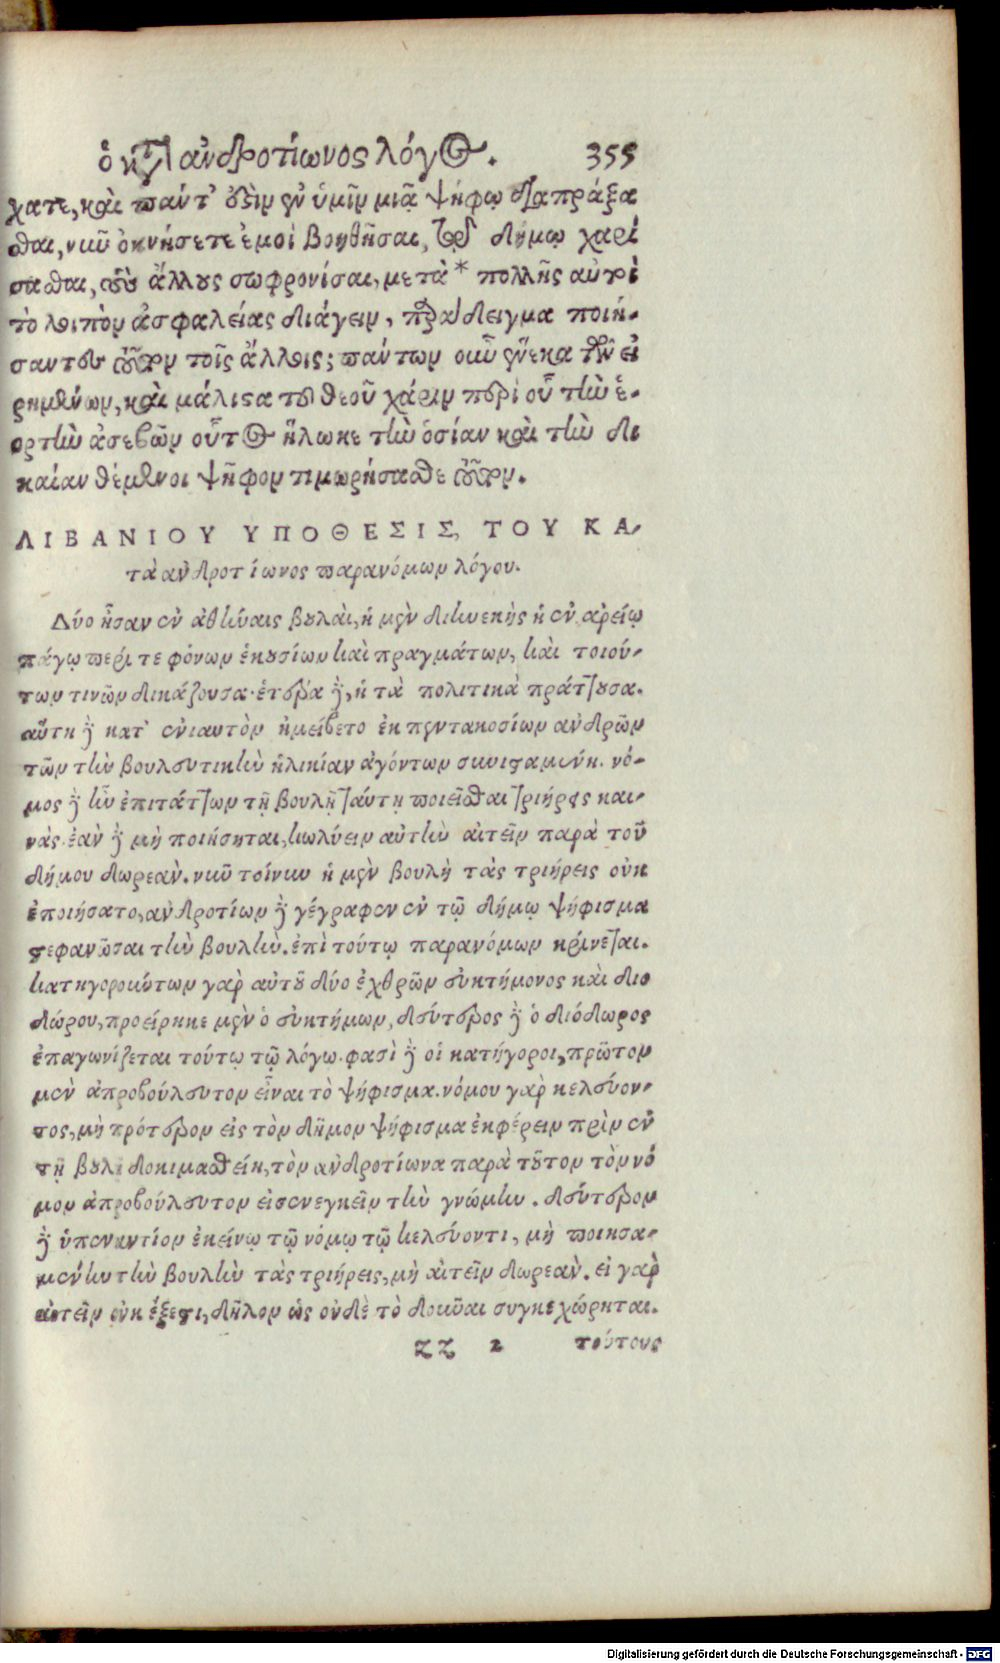 ὁ κατ' ἀνδροτίωνος λόγος. 355
χατε, καὶ πάντ' οὖσιν ἐν ὑμῖν μιᾷ ψήφῳ διαπράξα
σθαι, νῦν ὀκνήσετε ἐμοὶ βοηθῆσαι, τῷ δήμῳ χαρί
σασθαι, τοὺς ἄλλους σωφρονίσαι, μετὰ* πολλῆς αὐτοὶ
τὸ λοιπὸν ἀσφαλείας διάγειν, παράδειγμα ποιή-
σαντες τοῦτον τοῖς ἄλλοις; πάντων οὖν ἕνεκα τῶν εἰ
ρημένων, καὶ μάλιστα τοῦ θεοῦ χάριν περὶ οὗ τὴν ἑ-
ορτὴν ἀσεβῶν οὗτος ἥλωκε τὴν ὁσίαν καὶ τὴν δι
καίαν θέμενοι ψῆφον τιμωρήσασθε τοῦτον.
ΛΙΒΑΝΙΟΥ ΥΠΟΘΕΣΙΣ, ΤΟΥ ΚΑ-
τὰ ἀνδροτίωνος παρανόμων λόγου.
Δύο ἦσαν ἐν ἀθήναις βουλαὶ, ἡ μὲν διηνεκὴς ἡ ἐν ἀρείῳ
πάγῳ περί τε φόνων ἑκουσίων καὶ πραγμάτων, καὶ τοιού-
των τινῶν δικάζουσα· ἑτέρα δὲ, ἡ τὰ πολιτικὰ πράττουσα.
αὕτη δὲ κατ' ἐνιαυτὸν ἠμείβετο ἐκ πεντακοσίων ἀνδρῶν
τῶν τὴν βουλευτικὴν ἡλικίαν ἀγόντων συνισταμένη. νό-
μος δὲ ἦν ἐπιτάττων τῇ βουλῇ ταύτῃ ποιεῖσθαι τριήρεις και-
νὰς· ἐὰν δὲ μὴ ποιήσηται, κωλύειν αὐτὴν αἰτεῖν παρὰ τοῦ
δήμου δωρεάν. νῦν τοίνυν ἡ μὲν βουλὴ τὰς τριήρεις οὐκ
ἐποιήσατο, ἀνδροτίων δὲ γέγραφεν ἐν τῷ δήμῳ ψήφισμα
στεφανῶσαι τὴν βουλήν. ἐπὶ τούτῳ παρανόμων κρίνεται.
κατηγορηκότων γὰρ αὐτοῦ δύο ἐχθρῶν εὐκτήμονος καὶ διο
δώρου, προείρηκε μὲν ὁ εὐκτήμων, δεύτερος δὲ ὁ διόδωρος
ἐπαγωνίζεται τούτῳ τῷ λόγῳ. φασὶ δὲ οἱ κατήγοροι, πρῶτον
μὲν ἀπροβούλευτον εἶναι τὸ ψήφισμα. νόμου γὰρ κελεύον-
τος, μὴ πρότερον εἰς τὸν δῆμον ψήφισμα ἐκφέρειν πρὶν ἐν
τῇ βουλῇ δοκιμασθείη, τὸν ἀνδροτίωνα παρὰ τοῦτον τὸν νό
μον ἀπροβούλευτον εἰσενεγκεῖν τὴν γνώμην. δεύτερον
δὲ ὑπεναντίον ἐκείνῳ τῷ νόμῳ τῷ κελεύοντι, μὴ ποιησα-
μένην τὴν βουλὴν τὰς τριήρεις, μὴ αἰτεῖν δωρεάν. εἰ γὰρ
αἰτεῖν οὐκ ἔξεστι, δῆλον ὡς οὐδὲ τὸ δοῦναι συγκεχώρηται.
ζζ 2 τούτους
Digitalisierung gefördert durch die Deutsche Forschungsgemeinschaft - DFG